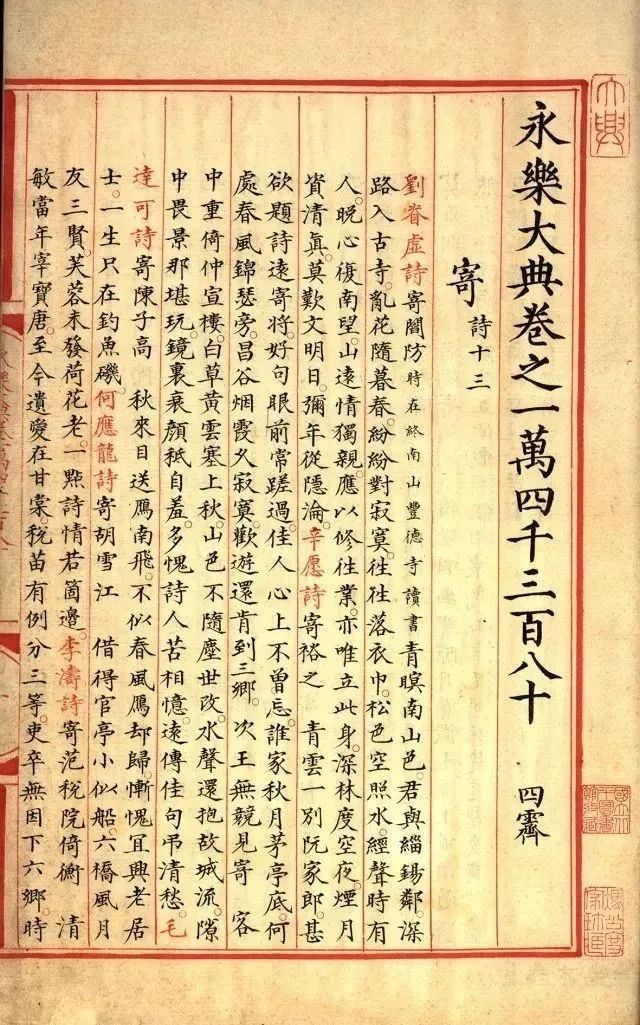 永樂大典卷之一萬四千三百八十 四霽
寄 詩十三
劉眘虛詩寄閻防時在終南山豐德寺讀書青暝南山色。君與緇錫鄰。深
路入古寺。亂花隨暮春。紛紛對寂寞。往往落衣巾。松色空照水。經聲時有
人。晚心復南望。山遠情獨親。應以修往業。亦唯立此身。深林度空夜。煙月
資清眞。莫歎文明日。彌年從隱淪。辛愿詩寄裕之 青雲一別阮家郎。甚
欲題詩遠寄將。好句眼前常蹉過。佳人心上不曾忘。誰家秋月茅亭底。何
處春風錦瑟旁。昌谷烟霞久寂寞。歡遊還肯到三鄉。 次王無競見寄 客
中重倚仲宣樓。白草黃雲塞上秋。山色不隨塵世改。水聲還抱故城流。隙
中畏景那堪玩。鏡裏衰顏秖自羞。多愧詩人苦相憶。遠傳佳句弔清愁。毛
達可詩寄陳子高 秋來日送鴈南飛。不似春風鴈却歸。慚愧宜興老居
士。一生只在釣魚磯。何應龍詩寄胡雪江 借得官亭小似船。六橋風月
友三賢。芙蓉未發荷花老。一點詩情若箇邊。李濤詩寄范稅院倚衡 清
敏當年宰寶唐。至今遺愛在甘棠。稅苗有例分三等。吏卒無因下六鄉。時
大興